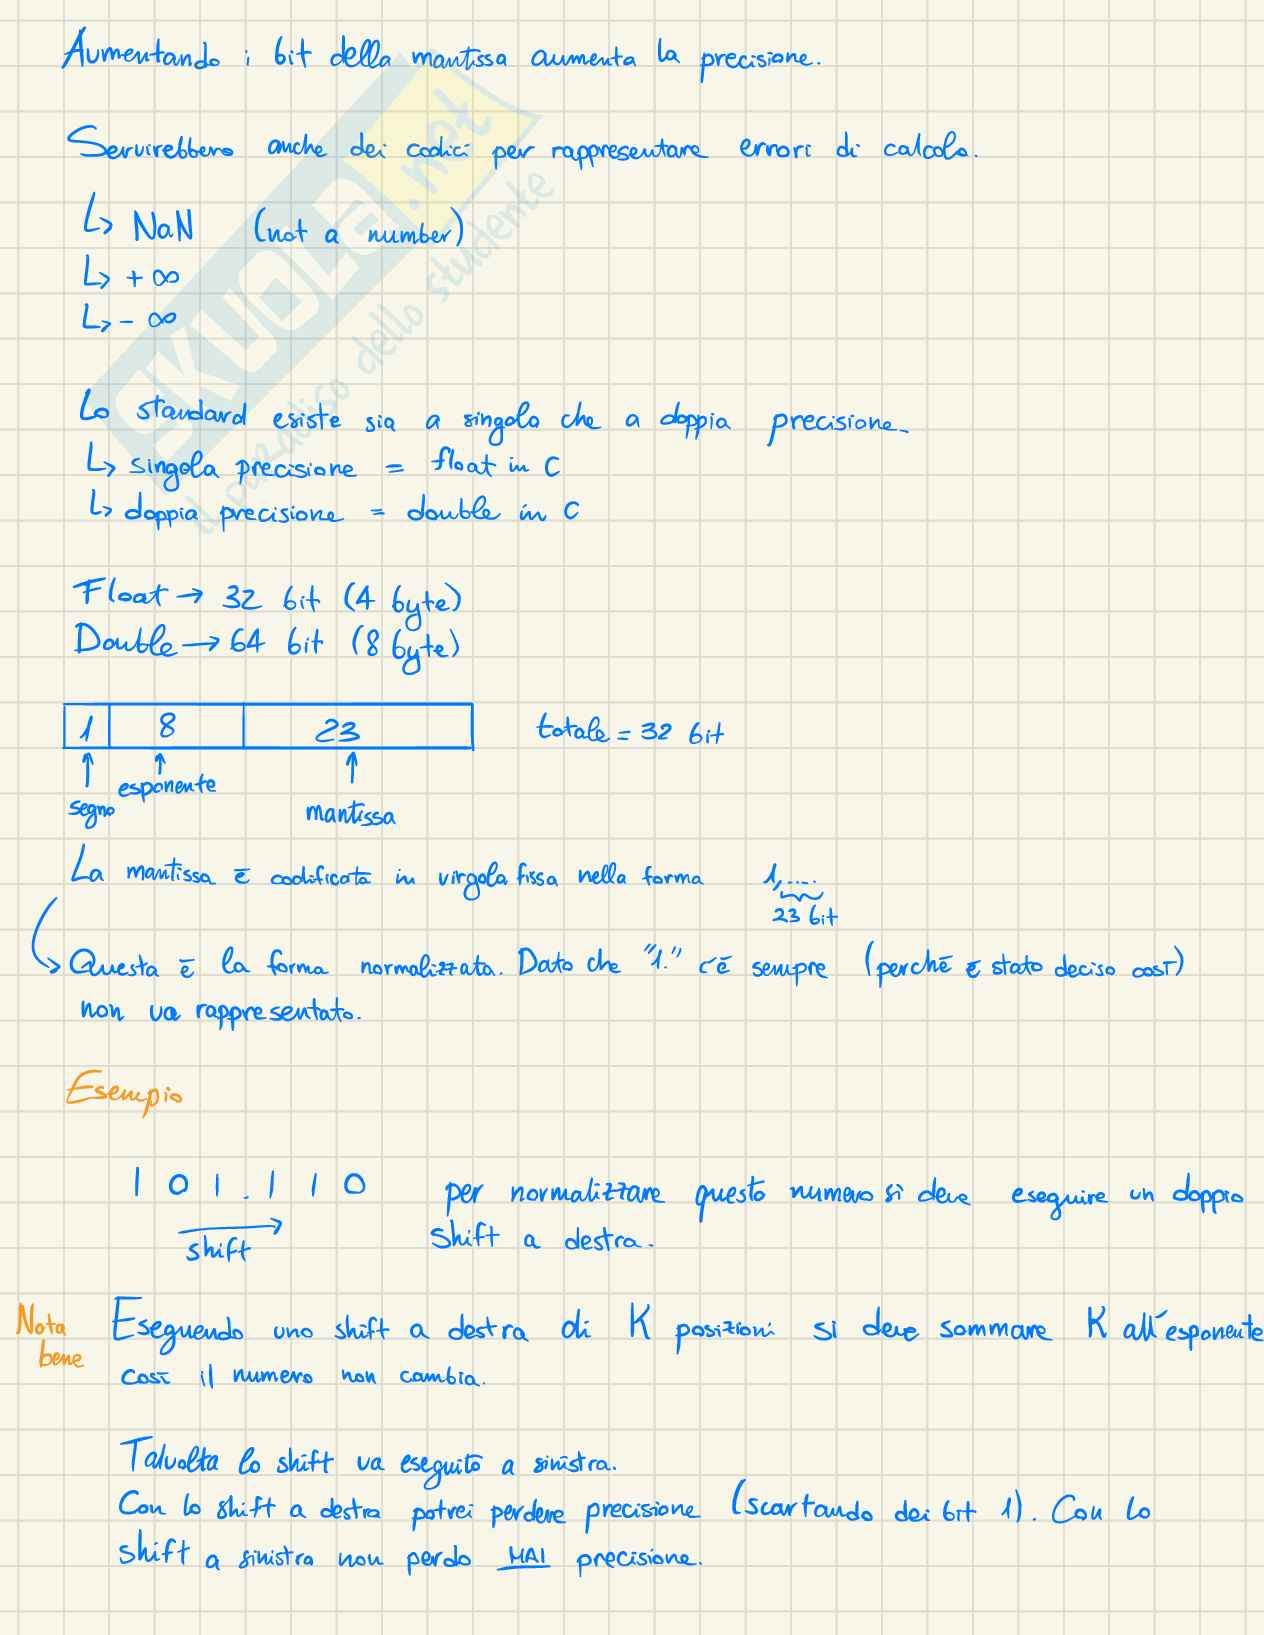 Aumentando i bit della mantissa aumenta la precisione.
Servirebbero anche dei codici per rappresentare errori di calcolo.
↳ NaN (not a number)
↳ + ∞
↳ - ∞
Lo standard esiste sia a singola che a doppia precisione.
↳ singola precisione = float in C
↳ doppia precisione = double in C
Float → 32 bit (4 byte)
Double → 64 bit (8 byte)
1 8 23 totale = 32 bit
segno esponente mantissa
La mantissa è codificata in virgola fissa nella forma 1,....
23 bit
Questa è la forma normalizzata. Dato che "1." c'è sempre (perché è stato deciso così)
non va rappresentato.
Esempio
1 0 1 . 1 1 0 per normalizzare questo numero si deve eseguire un doppio
shift shift a destra.
Nota bene Eseguendo uno shift a destra di K posizioni si deve sommare K all'esponente
così il numero non cambia.
Talvolta lo shift va eseguito a sinistra.
Con lo shift a destra potrei perdere precisione (scartando dei bit 1). Con lo
shift a sinistra non perdo MAI precisione.
SKUOLA.net
il paradiso dello studente